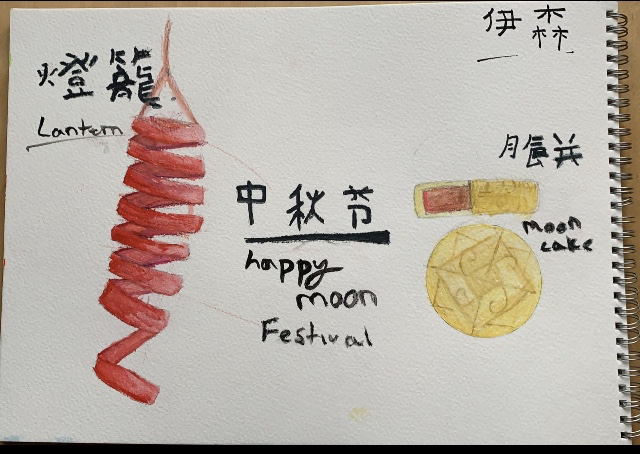 伊森
燈籠
Lantern
月餅
moon
cake
中秋节
happy
moon
Festival